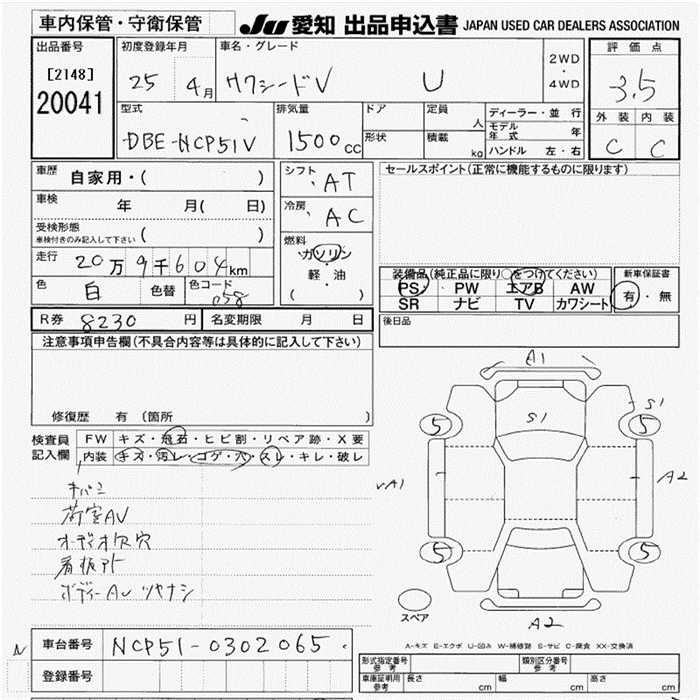 車内保管・守衛保管
JU 愛知 出品申込書 JAPAN USED CAR DEALERS ASSOCIATION
出品番号 初度登録年月 車名・グレード 2WD・4WD 評価点
[2148] 25年 4月 サクシードV U 3.5
20041
型式 排気量 ドア 定員 人 ディーラー・並行 外装 内装
DBE-NCP51V 1500cc 形状 積載 kg モデル年式 年 C C
ハンドル 左・右
車歴 自家用・( ) シフト AT セールスポイント(正常に機能するものに限ります)
車検 年 月( 日) 冷房 AC
受検形態 ( )
車検付きのみ記入して下さい
燃料 ガソリン・軽・油 ( )
走行 20万9千604km
装備品(純正品に限り○をつけてください) 新車保証書
色 白 色替 色コード 058
PS PW エアB AW 有・無
SR ナビ TV カワシート
R券 8230円 名変期限 月 日 後日品
注意事項申告欄(不具合内容等は具体的に記入して下さい)
修復歴 有 (箇所 )
検査員記入欄
FW キズ・飛石・ヒビ割・リペア跡・X要
内装 キズ・汚レ・コゲ・穴・スレ・キレ・破レ
荷室AU
オーディオ穴
看板アト
ボディーAU ツヤナシ
A1
S1
S1
5 5
A1 A2
5 5
スペア
A2
A-キズ E-エクボ U-凹み W-補修跡 S-サビ C-腐食 XX-交換済
N
車台番号 NCP51-0302065
登録番号
形式指定番号 参考 類別区分番号 参考
車庫証明用 参考 長さ cm 幅 cm 高さ cm